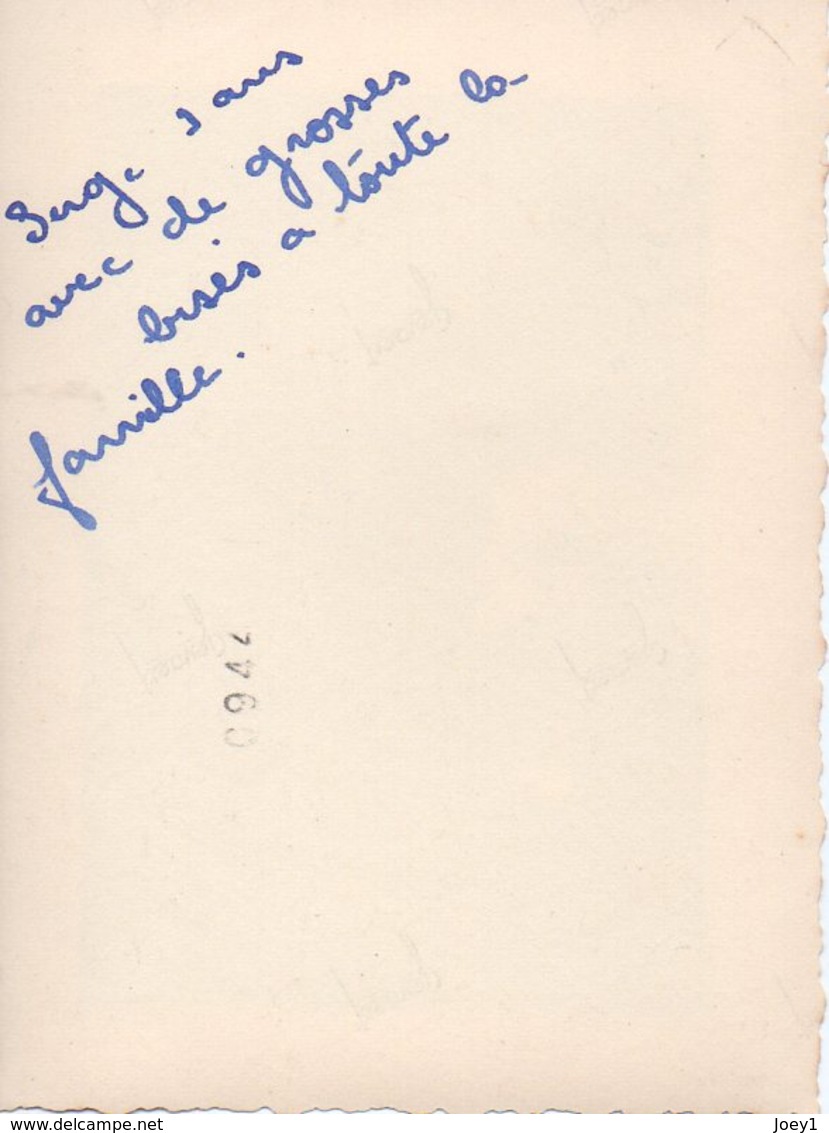 Serge 3 ans
avec de grosses
bises a toute la
famille.
0944
www.delcampe.net
Joey1